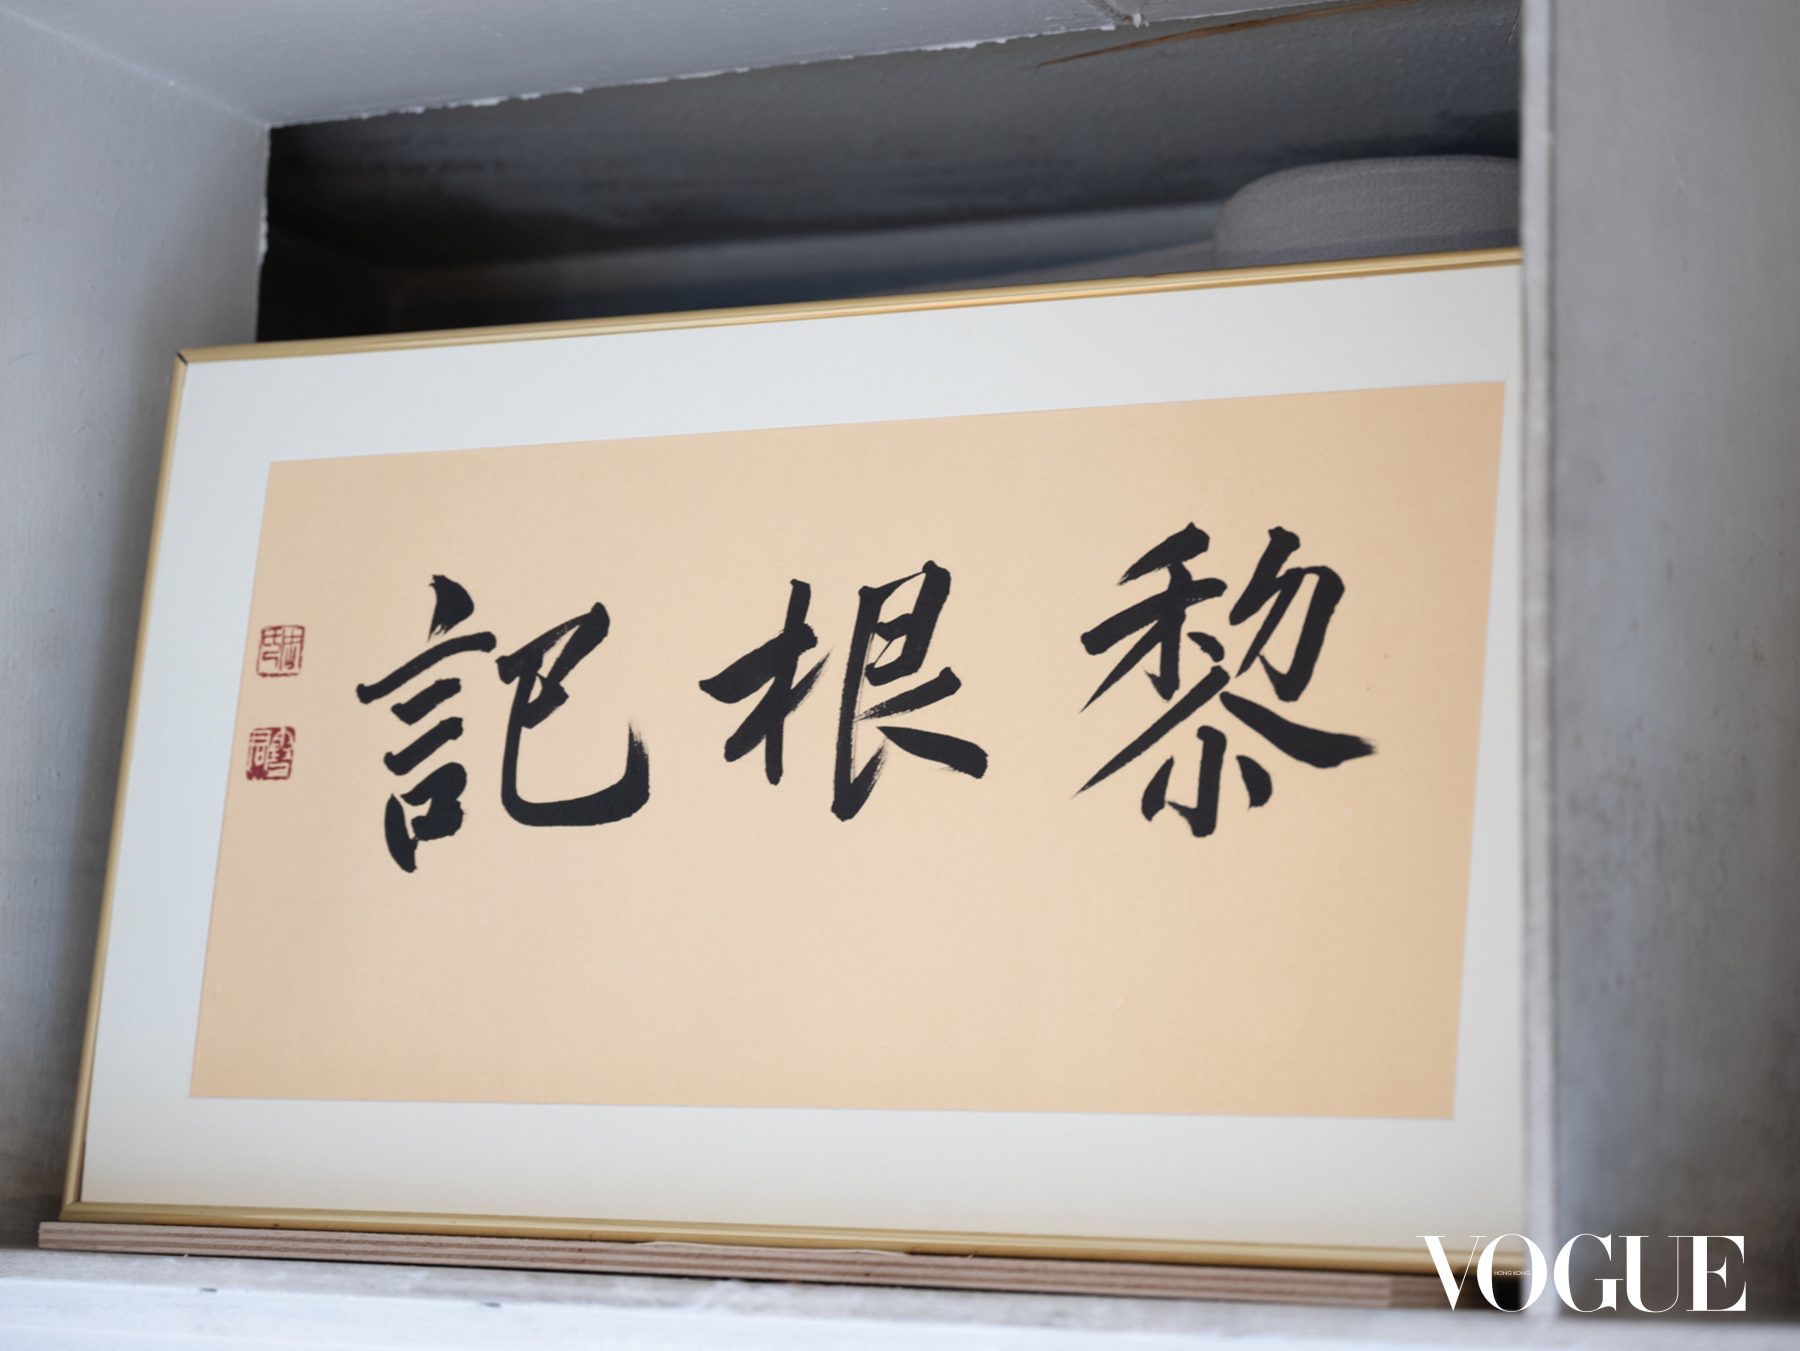 黎根記
VOGUE
HONG KONG